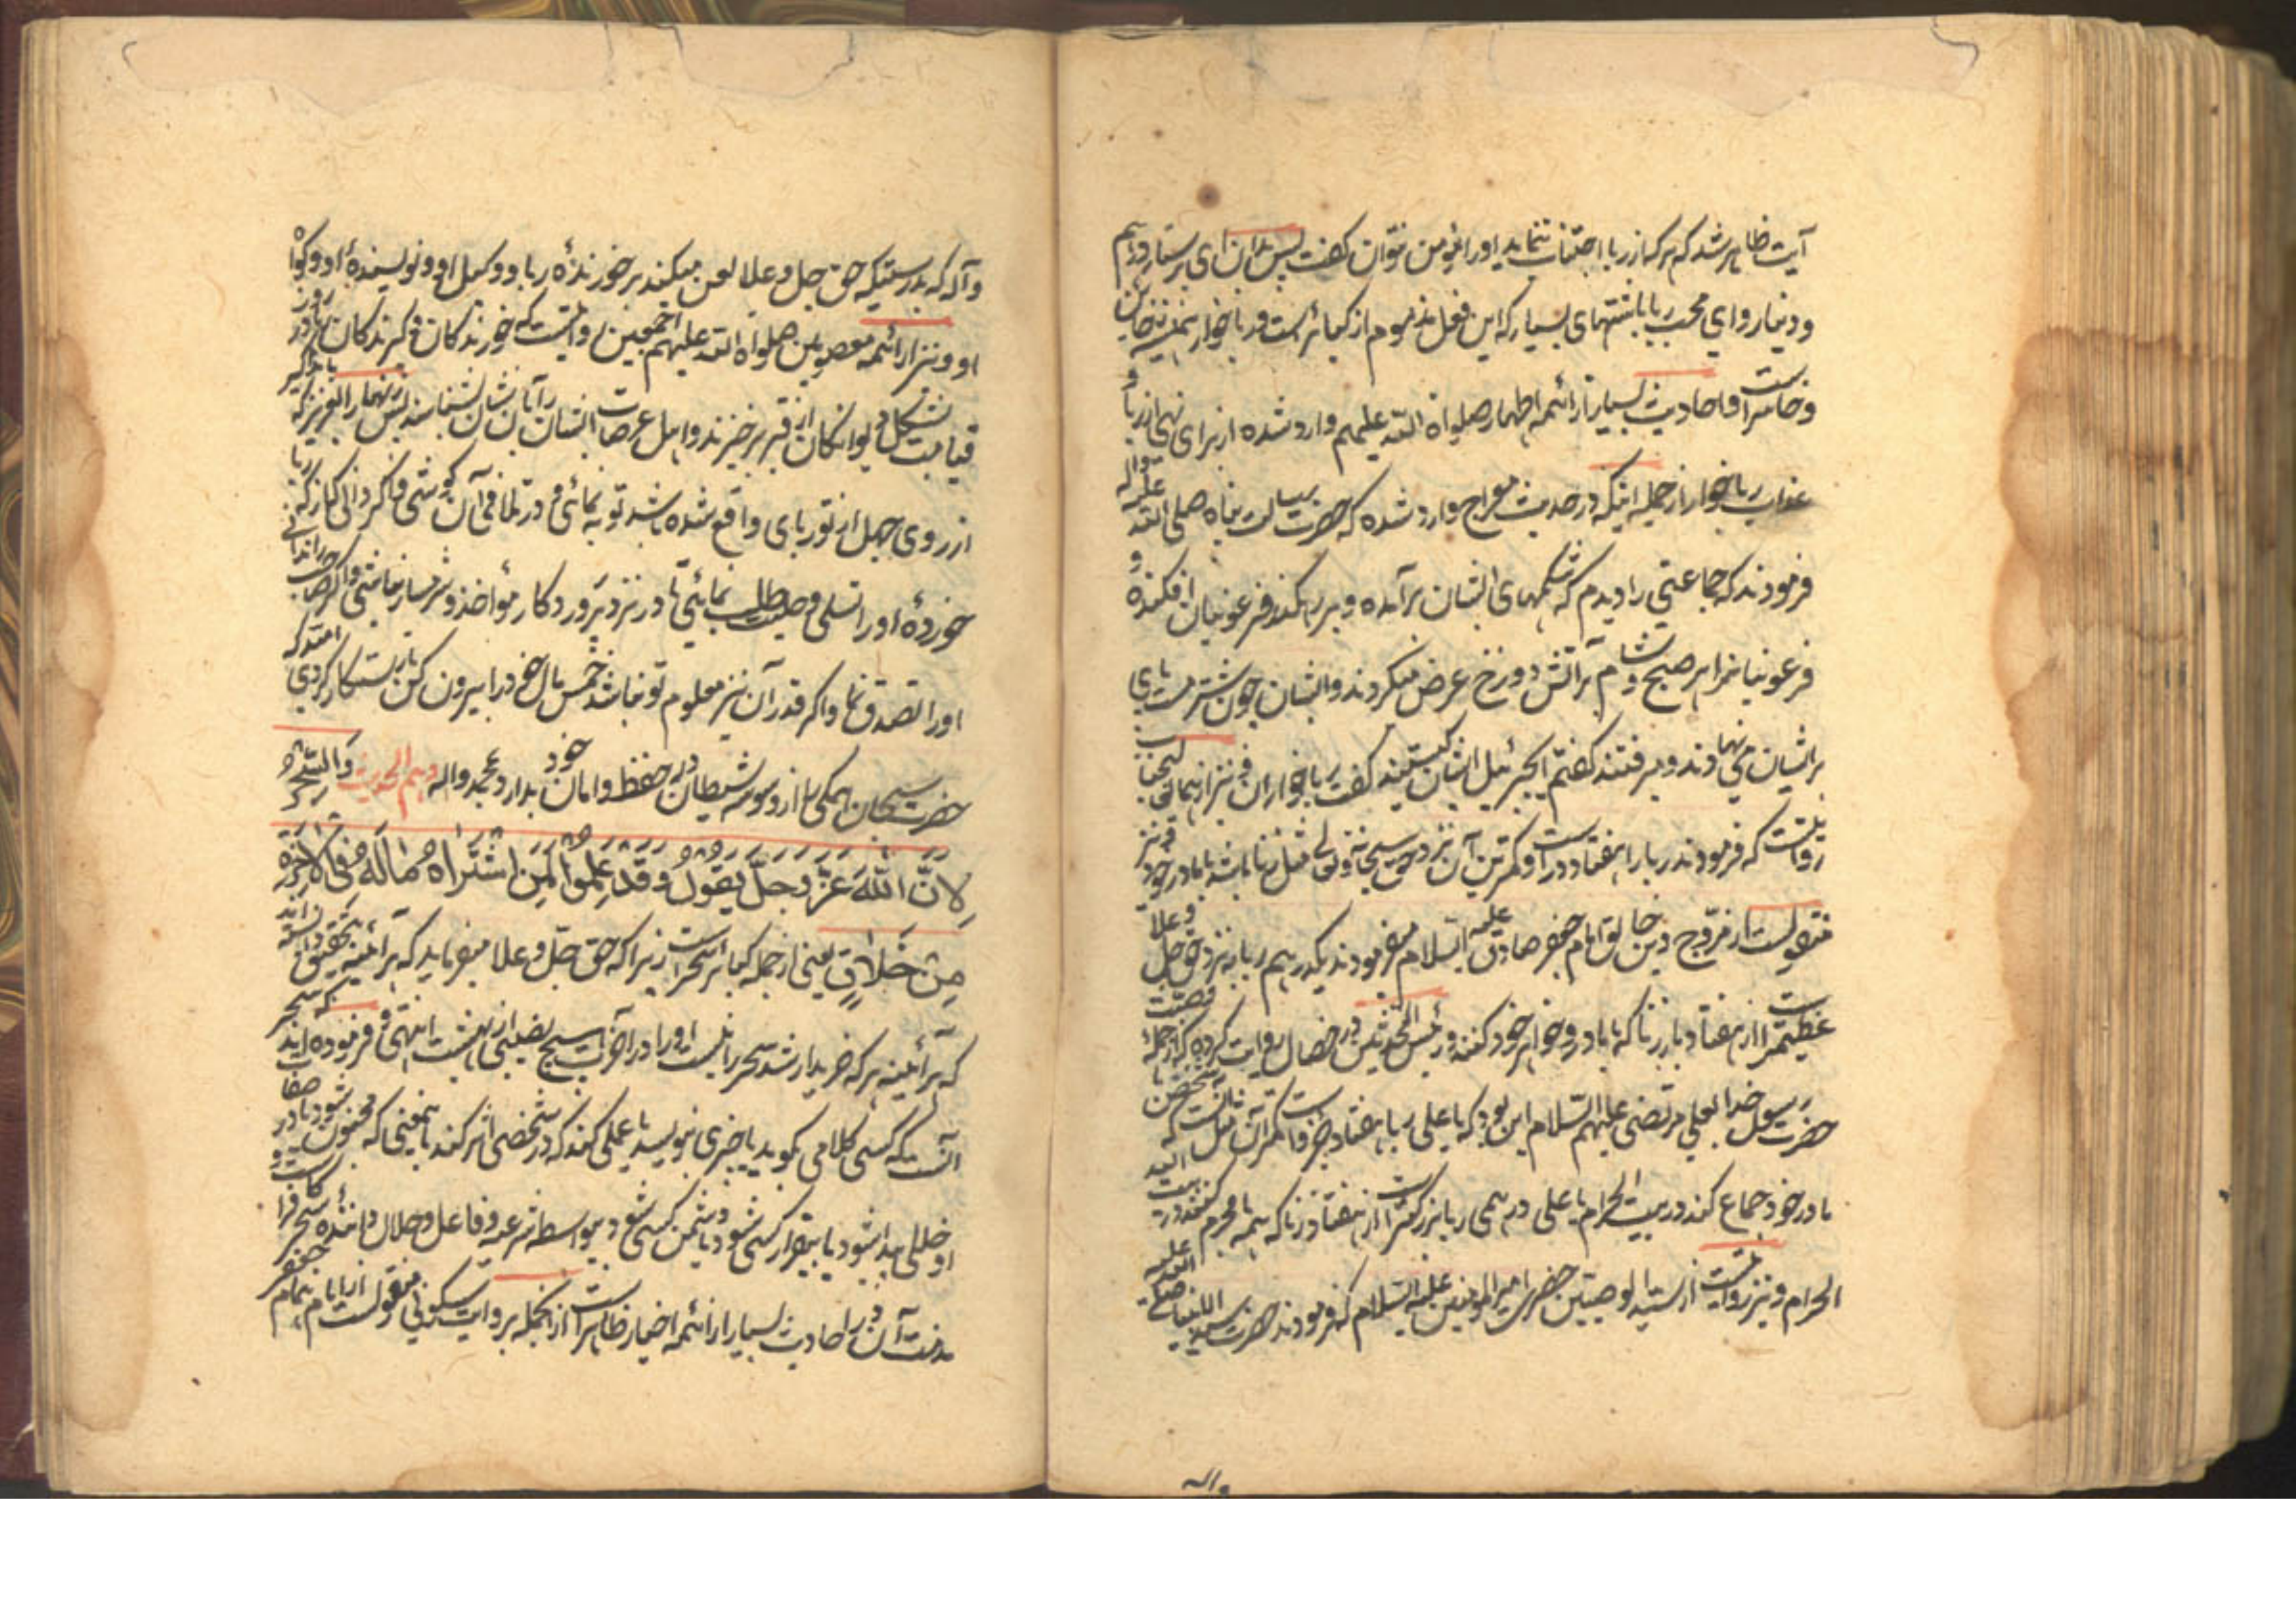 آیت ظاهر شد که هر که از ربا اجتناب ننماید او را مؤمن نتوان گفت پس بدان ای پرستار درهم
و دینار و ای محب ربا باشتهای بسیار که این فعل مذموم از کبائر است و ربا خوار همیشه خائن
و خاسر است و احادیث بسیار از ائمه اطهار صلواة الله علیهم وارد شده از برای نهی از ربا و
عذاب ربا خوار از جمله اینکه در حدیث معراج وارد شده که حضرت رسالت پناه صلی الله علیه و آله
فرمودند که جماعتی را دیدم که شکمهای ایشان برآمده و بر رهگذر فرعونیان افکنده و
فرعونیانرا هر صبح و شام بر آتش دوزخ عرض میکردند و ایشان چون شتر مست پای
بر ایشان می نهادند و میرفتند گفتم ای جبرئیل ایشان کیستند گفت ربا خواران و نیز از همان
روایتست که فرمودند ربا را هفتاد در است و کمترین آن نزد حق سبحانه و تعالی مثل زنا باشد با مادر خود و نیز
منقولست از مروج دین خالق امام جعفر صادق علیه السلام میفرمودند یکدرهم ربا به نزد حق جل و علا
عظیمتر است از هفتاد بار زنا که با مادر و خواهر خود کنند و رئیس المحدثین در خصال روایت کرده که از جمله وصیت
حضرت رسول خدا بعلی مرتضی علیهم السلام این بود که یا علی ربا هفتاد جزو است و کمتر آن مثل آنست که شخصی با
مادر خود جماع کند در بیت الحرام یا علی درهمی ربا بزرگتر است از هفتاد زنا که همه با محرم کنند در بیت الله
الحرام و نیز روایتست از سید الوصیین حضرت امیر المومنین علیه السلام که فرمودند حضرت سید الانبیا صلی الله علیه
و اله
و آله که بدرستیکه حق جل و علا لعن میکند بر خورندهٔ ربا و وکیل او و نویسندهٔ او و گواه
او و نیز از ائمه معصومین صلواة الله علیهم اجمعین روایتست که خورندگان و گیرندگان ربا در روز
قیامت بشکل دیوانگان از قبر برخیزند و اهل عرصات ایشان را بآن نشان بشناسند پس زنهار ای عزیز که
از روی جهل از تو ربای واقع شده باشد توبه نمائی و در تلافی آن کوشی و اگر دانی که از که ربا
خوردهٔ او را تسلی و حلیت طلب نمائی تا در نزد پروردگار مؤاخذ و شرمسار نباشی و اگر صاحب را ندانی
او را تصدق نما و اگر قدر آن نیز معلوم تو نباشد خمس مال خود را بیرون کن تا رستگار گردی امید که
حضرت سبحان همگی را از وسوسه شیطان در حفظ و امان خود بدارد بمحمد و اله دهم الحدیث وَالسِّحْرُ
لِاَنَّ اللّٰهَ عَزَّ وَجَلَّ یَقُولُ وَقَدْ عَلِمُوا لَمَنِ اشْتَرٰاهُ مٰا لَهُ فِی الْآخِرَةِ
مِنْ خَلٰاقٍ یعنی از جمله کبائر سحر است زیرا که حق جل و علا میفرماید که هر آئینه بتحقیق دانسته اند
که هر آئینه هر که خریدار شد سحر را نیست او را در آخرت هیچ نصیبی از بهشت انتهی و فرموده اند که سحر
آنست که کسی کلامی بگوید یا چیزی بنویسد یا عملی کند که در شخصی اثر کند بمعنی که مجنون شود یا در
او خللی پیدا شود یا بیقرار کسی شود یا دشمن کسی شود بیواسطه شرعیه و فاعل و حلال دانندهٔ سحر کافر است و
مذمت آن در احادیث بسیار از ائمه اخیار ظاهر است از انجمله بروایت سکونی منقولست از امام بهمام جعفر